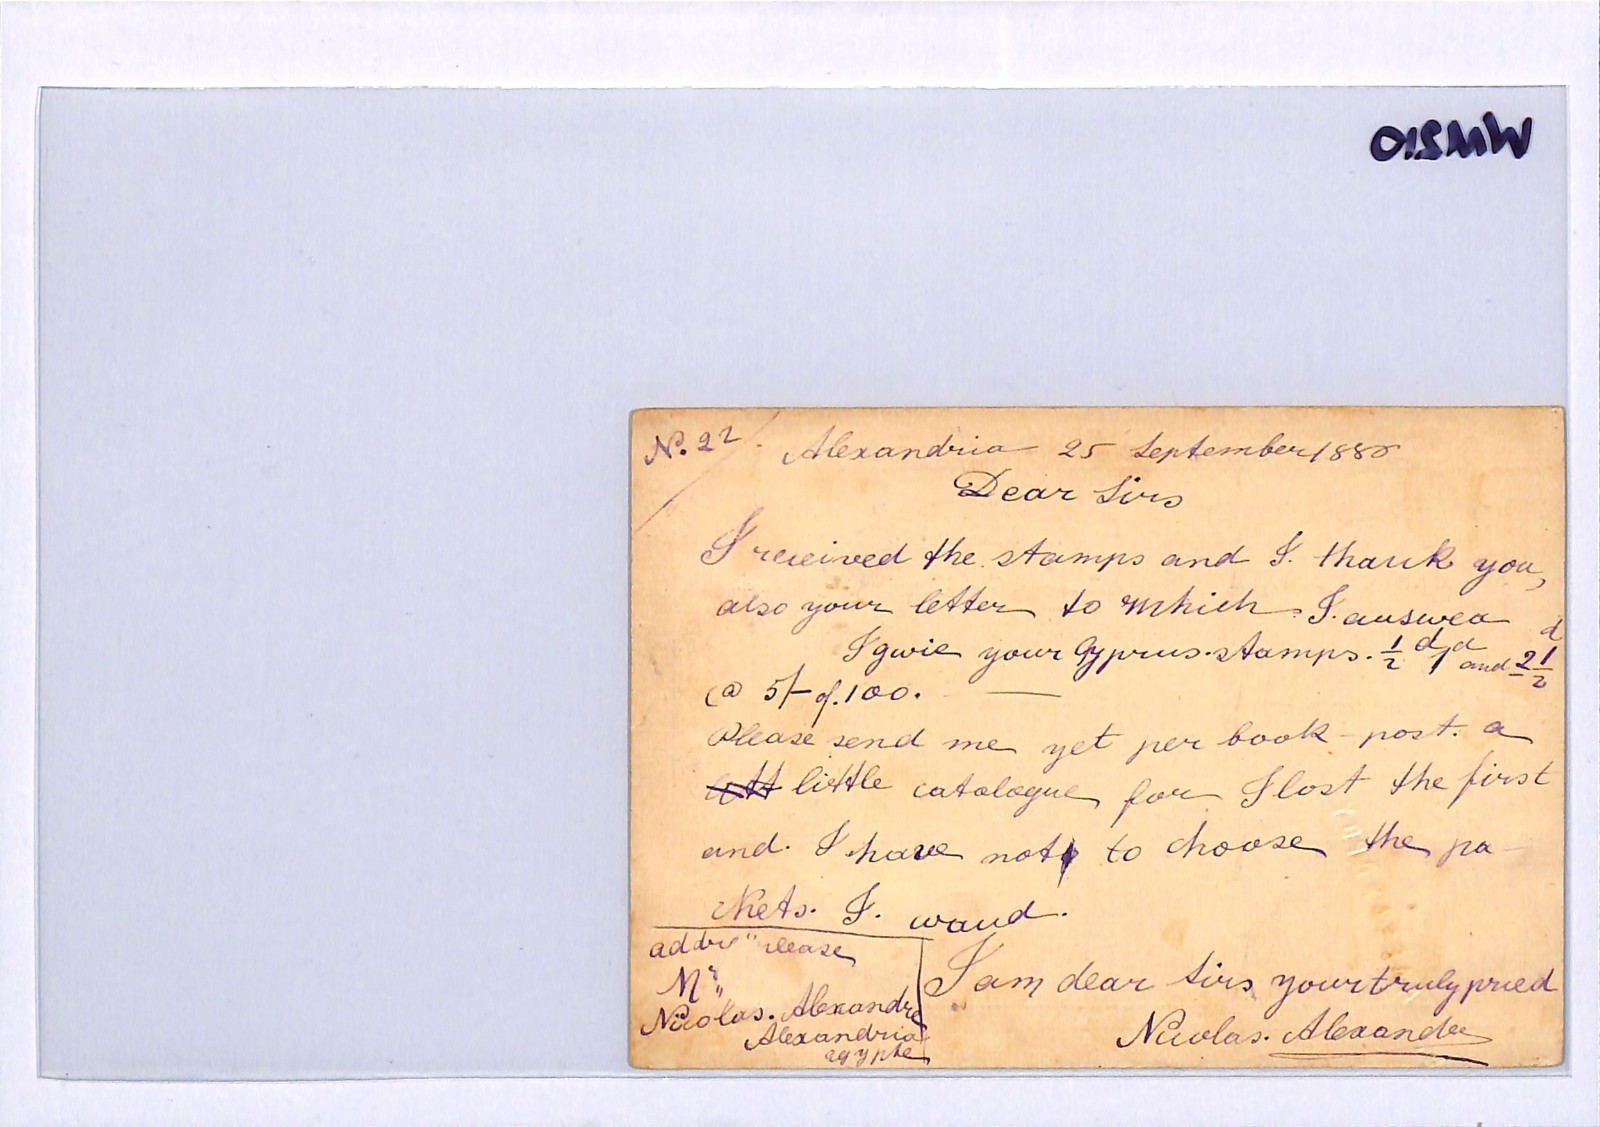 MW510
N. 22
Alexandria 25 September 1880
Dear Sirs
I received the stamps and I. thank you,
also your letter to which I. auswea
I gwie your Cyprus stamps. ½ d 1 d and 2½ d
@ 5/- of. 100. —
Please send me yet per book post. a
little catalogue for I lost the first
and. I have not to choose the pa-
kets. I. waud.
I am dear Sirs your truly pried
Nicolas. Alexandre
addre" please
Mr
Nicolas. Alexandre
Alexandria
egypte